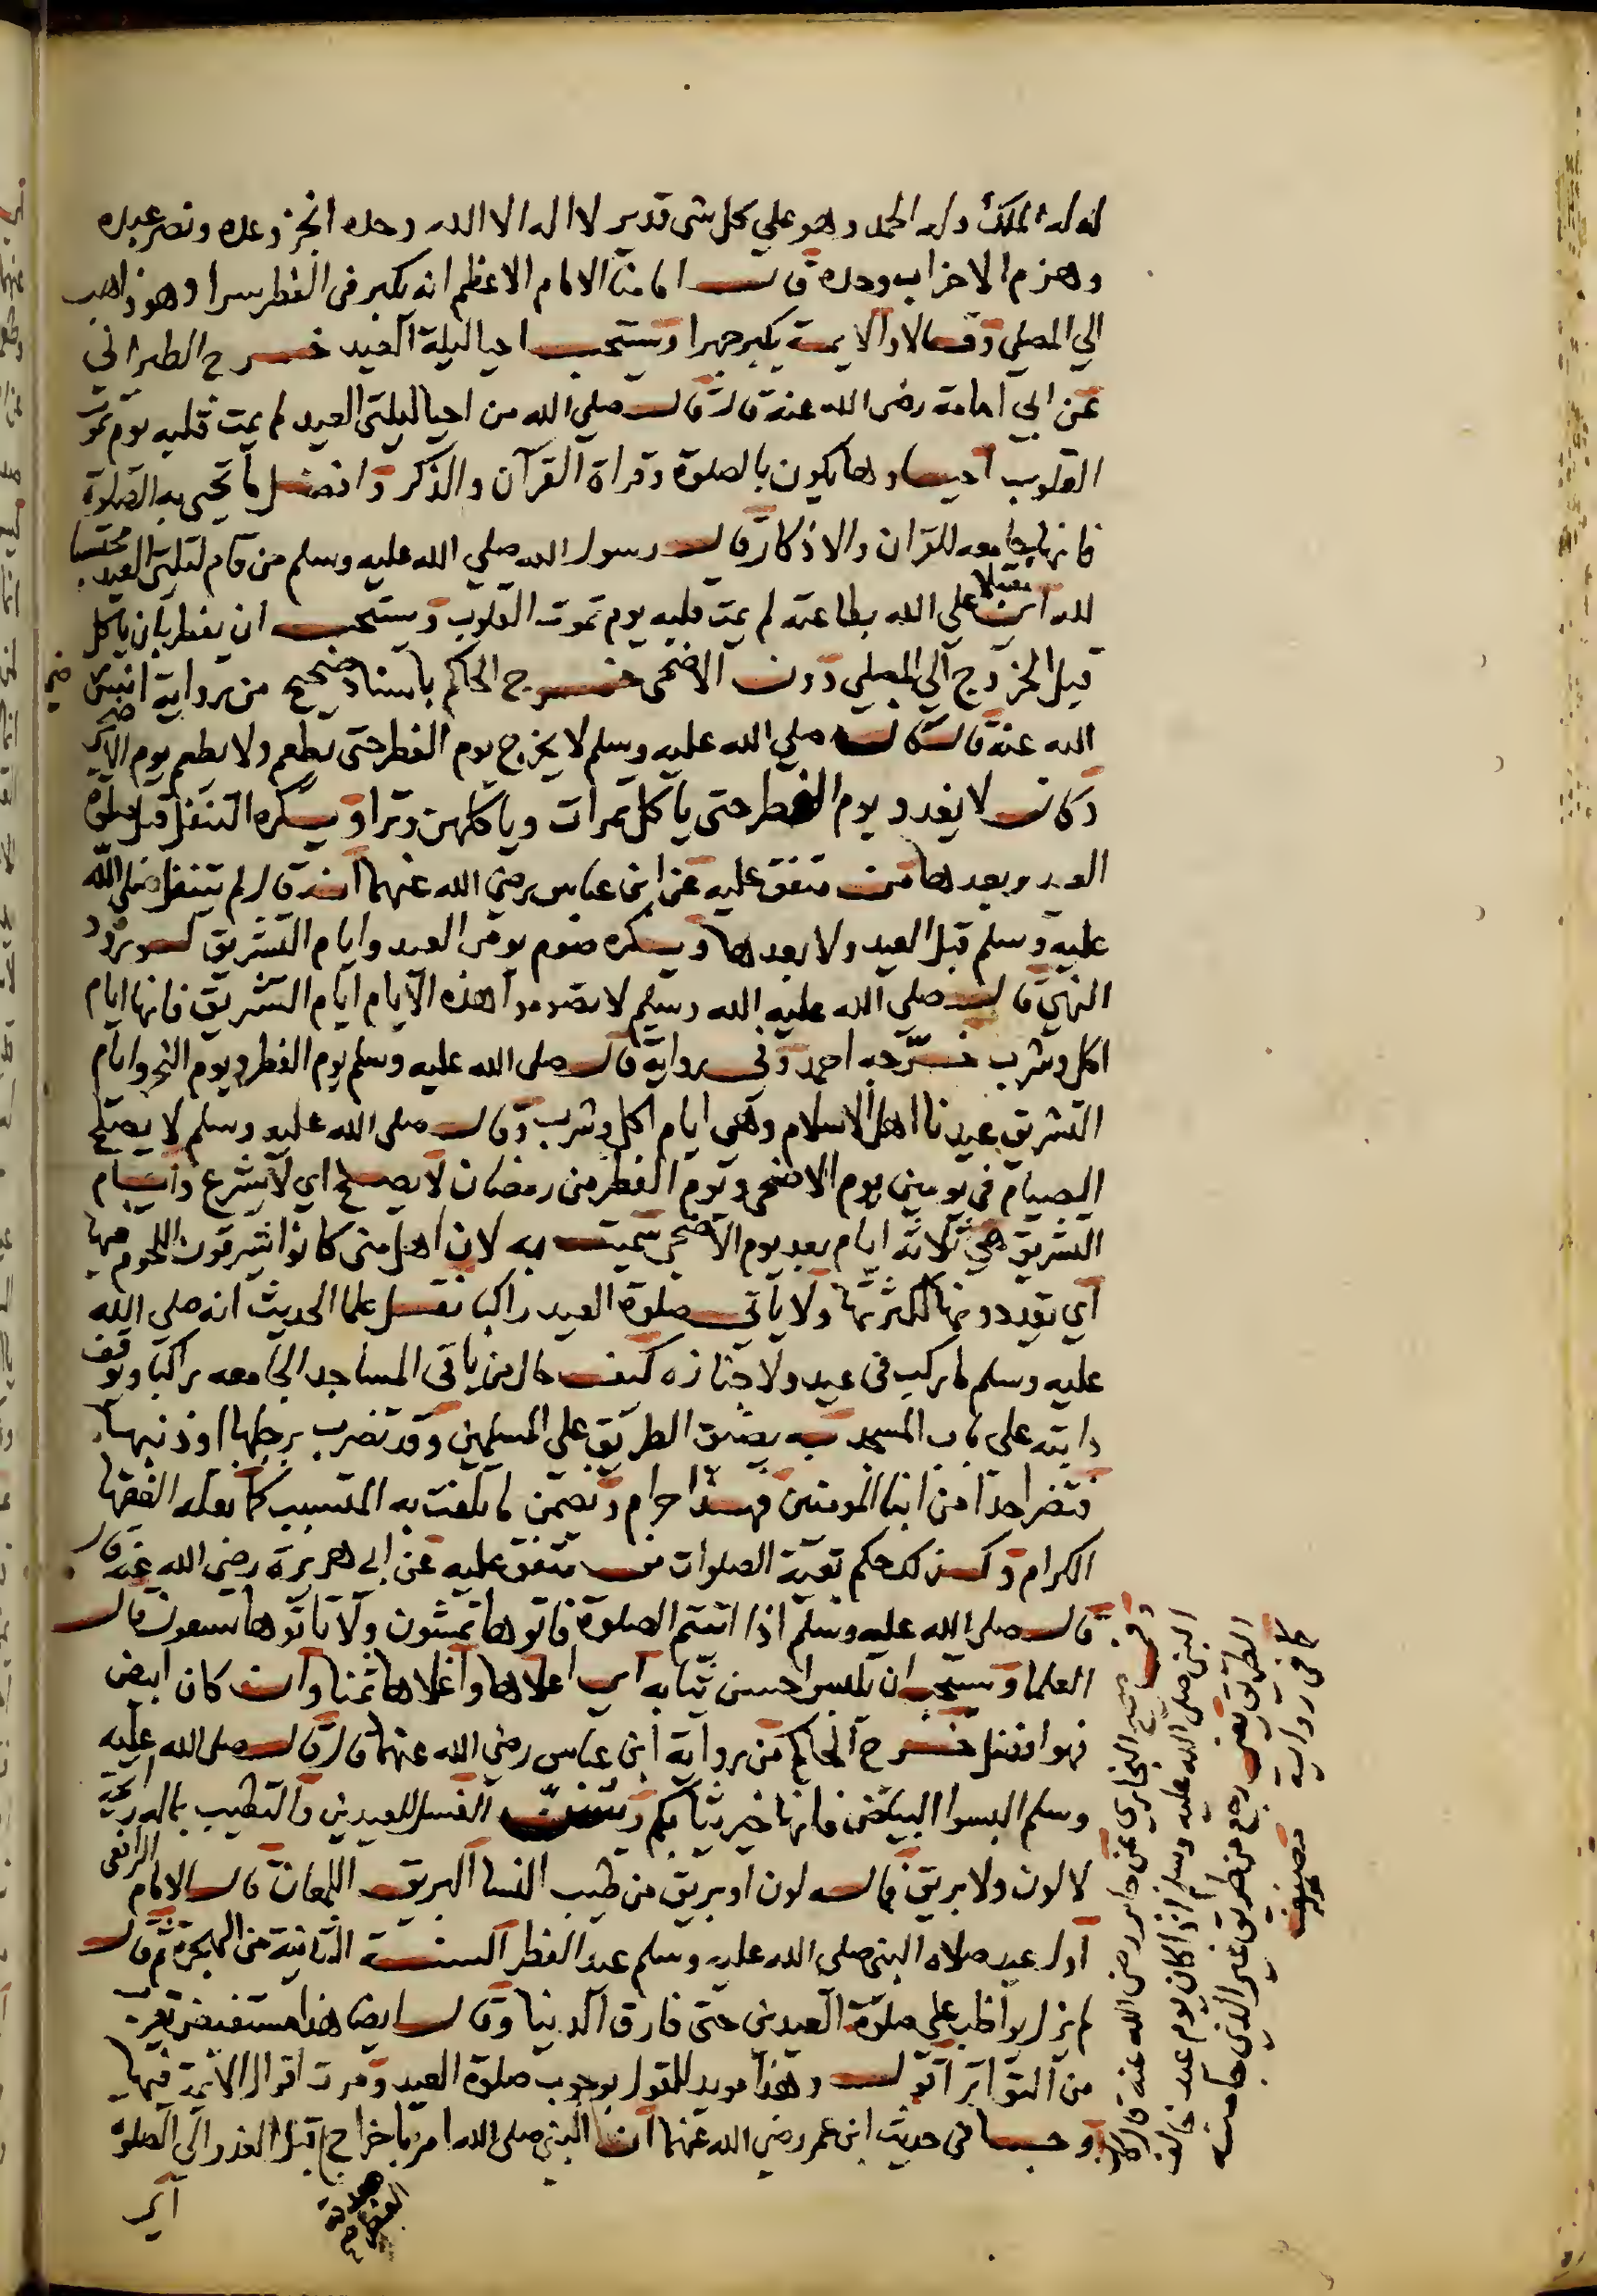 له له الملك وله الحمد وهو علي كل شي قدير لا اله الا الله وحده انجز وعده ونصر عبده
وهزم الاحزاب وحده قال امامنا الامام الاعظم انه يكبر في الفطر سرا وهو ذاهب
الي المصلي وقالا والايمة يكبر جهرا ويستحب احيا ليلة العيد خرج الطبراني
عن ابي امامة رضي الله عنه قال قال صلي الله من احيا ليلتي العيد لم يمت قلبه يوم تموت
القلوب احياوها يكون بالصلوة وقراة القرآن والذكر وافضل ما تحي به الصلوة
فانها جامعه للقران والاذكار قال رسول الله صلي الله عليه وسلم من قام ليلتي العيد محتسبا
لله اي مقبلا علي الله بطاعته لم يمت قلبه يوم تموت القلوب ويستحب ان يفطر بان ياكل
قبل الخروج الي المصلي دون الاضحى خرج الحاكم باسناد صحيح من رواية انس رضي
الله عنه قال كان صلي الله عليه وسلم لا يخرج يوم الفطر حتى يطعم ولا يطعم يوم الاضحى
وكان لا يغدو يوم الفطر حتى ياكل تمرات وياكلهن وترا ويكره التنفل قبل صلوة
العيد وبعدها متفق عليه عن ابن عباس رضي الله عنهما انه قال لم يتنفل صلى الله
عليه وسلم قبل العيد ولا بعدها ويكره صوم يومي العيد وايام التشريق لورود
النهي قال صلي الله عليه الله وسلم لا تصوموا هذه الايام ايام التشريق فانها ايام
اكل وشرب خرجه احمد وفي رواية قال صلى الله عليه وسلم يوم الفطر ويوم النحر وايام
التشريق عيدنا اهل الاسلام وهي ايام اكل وشرب وقال صلى الله عليه وسلم لا يصلح
الصيام في يومين يوم الاضحى ويوم الفطر من رمضان لا يصلح اي لا يشرع وايام
التشريق هي ثلاثة ايام بعد يوم الاضحى سميت به لان اهل منى كانوا يشرقون اللحوم فيها
اي يقددونها لكثرتها ولا ياتي صلوة العيد راكبا نقل علما الحديث انه صلى الله
عليه وسلم ما ركب في عيد ولا جنازه كيف حال من ياتي المساجد الجامعه راكبا وتوقف
دابته على باب المسجد يضيق الطريق على المسلمين وقد تضرب برجلها او ذنبها
فتضر احدا من ابنا المومنين فهذا حرام وتضمن ما تلفت به المتسبب كما نقله الفقها
الكرام وكذلك حكم بقية الصلوات متفق عليه عن ابي هريرة رضي الله عنه قال
قال صلى الله عليه وسلم اذا اتيتم الصلوة فاتوها تمشون ولا تاتوها تسعون قال
العلما ويستحب ان يلبس احسن ثيابه اي اعلاها واغلاها ثمنا وان كان ابيض
فهو افضل خرج الحاكم من رواية ابن عباس رضي الله عنهما قال قال صلى الله عليه
وسلم البسوا البياض فانها خير ثيابكم ويسن الغسل للعيدين والتطيب بماله رائحة
لا لون ولا بريق فماله لون او بريق من طيب النسا البريق اللمعان قال الامام الرافعي
اول عيد صلاه النبي صلى الله عليه وسلم عيد الفطر السنة الثانية من الهجرة ثم قال
لم يزل يواظب على صلوة العيدين حتى فارق الدنيا وقال ايضا هذا مستفيض يقرب
من التواتر اقول وهذا مويد للقول بوجوب صلوة العيد ومرت اقوال الائمة فيها
وحسبنا في حديث ابن عمر رضي الله عنهما ان النبي صلى الله امر باخراج قبل الغدو الى الصلوة
صدقة
الفطر
اي
وفي صحيح البخاري عن جابر رضي الله عنه قال كان
النبي صلى الله عليه وسلم اذا كان يوم عيد خالف
الطريق يعني رجع من طريق غير الذي جا منه
كما في رواية